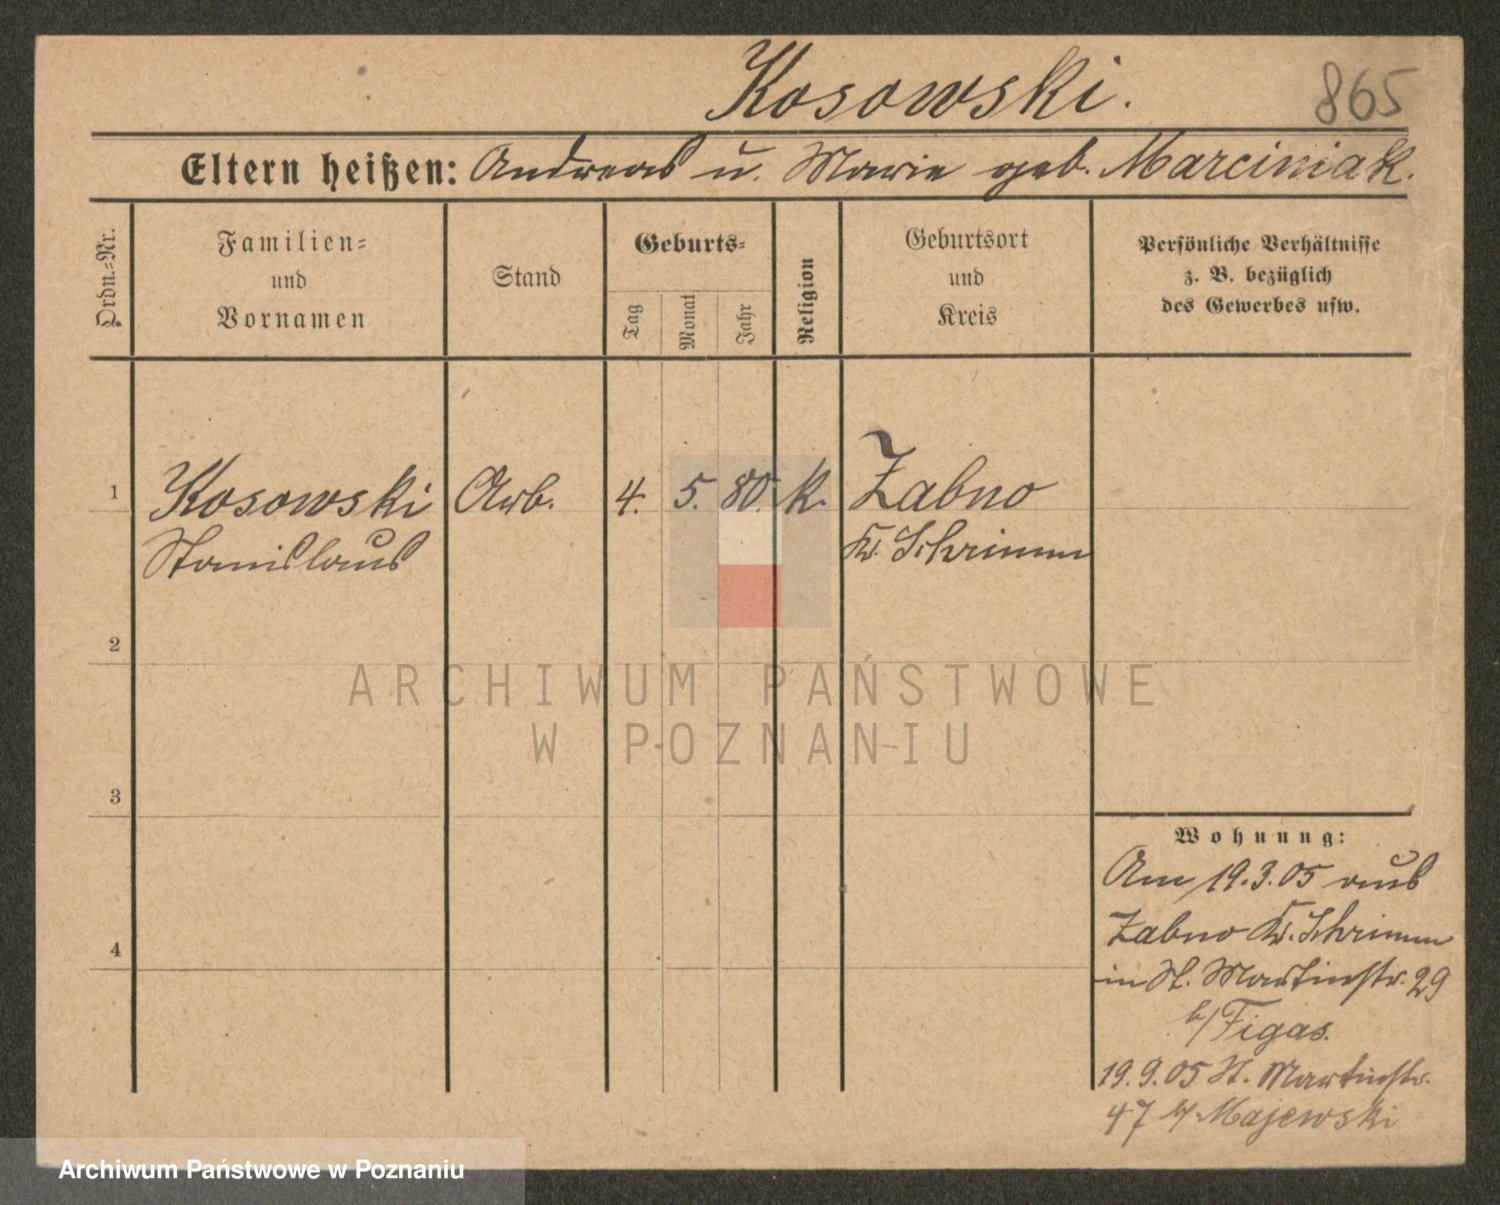 Kosowski.
865
Eltern heißen: Andreas u. Marie geb. Marciniak.
Ordn.-Nr.
Familien-
und
Vornamen
Stand
Geburts-
Tag
Monat
Jahr
Religion
Geburtsort
und
Kreis
Persönliche Verhältnisse
z. B. bezüglich
des Gewerbes usw.
1
Kosowski Arb. 4. 5. 80. k. Zabno
Stanislaus
Kr. Schrimm
2
ARCHIWUM PAŃSTWOWE
W POZNANIU
3
Wohnung:
Am 19.3.05 aus
Zabno Kr. Schrimm
4
in St. Martinstr. 29
b/Figas.
19.9.05 St. Martinstr.
47 b/ Majewski
Archiwum Państwowe w Poznaniu